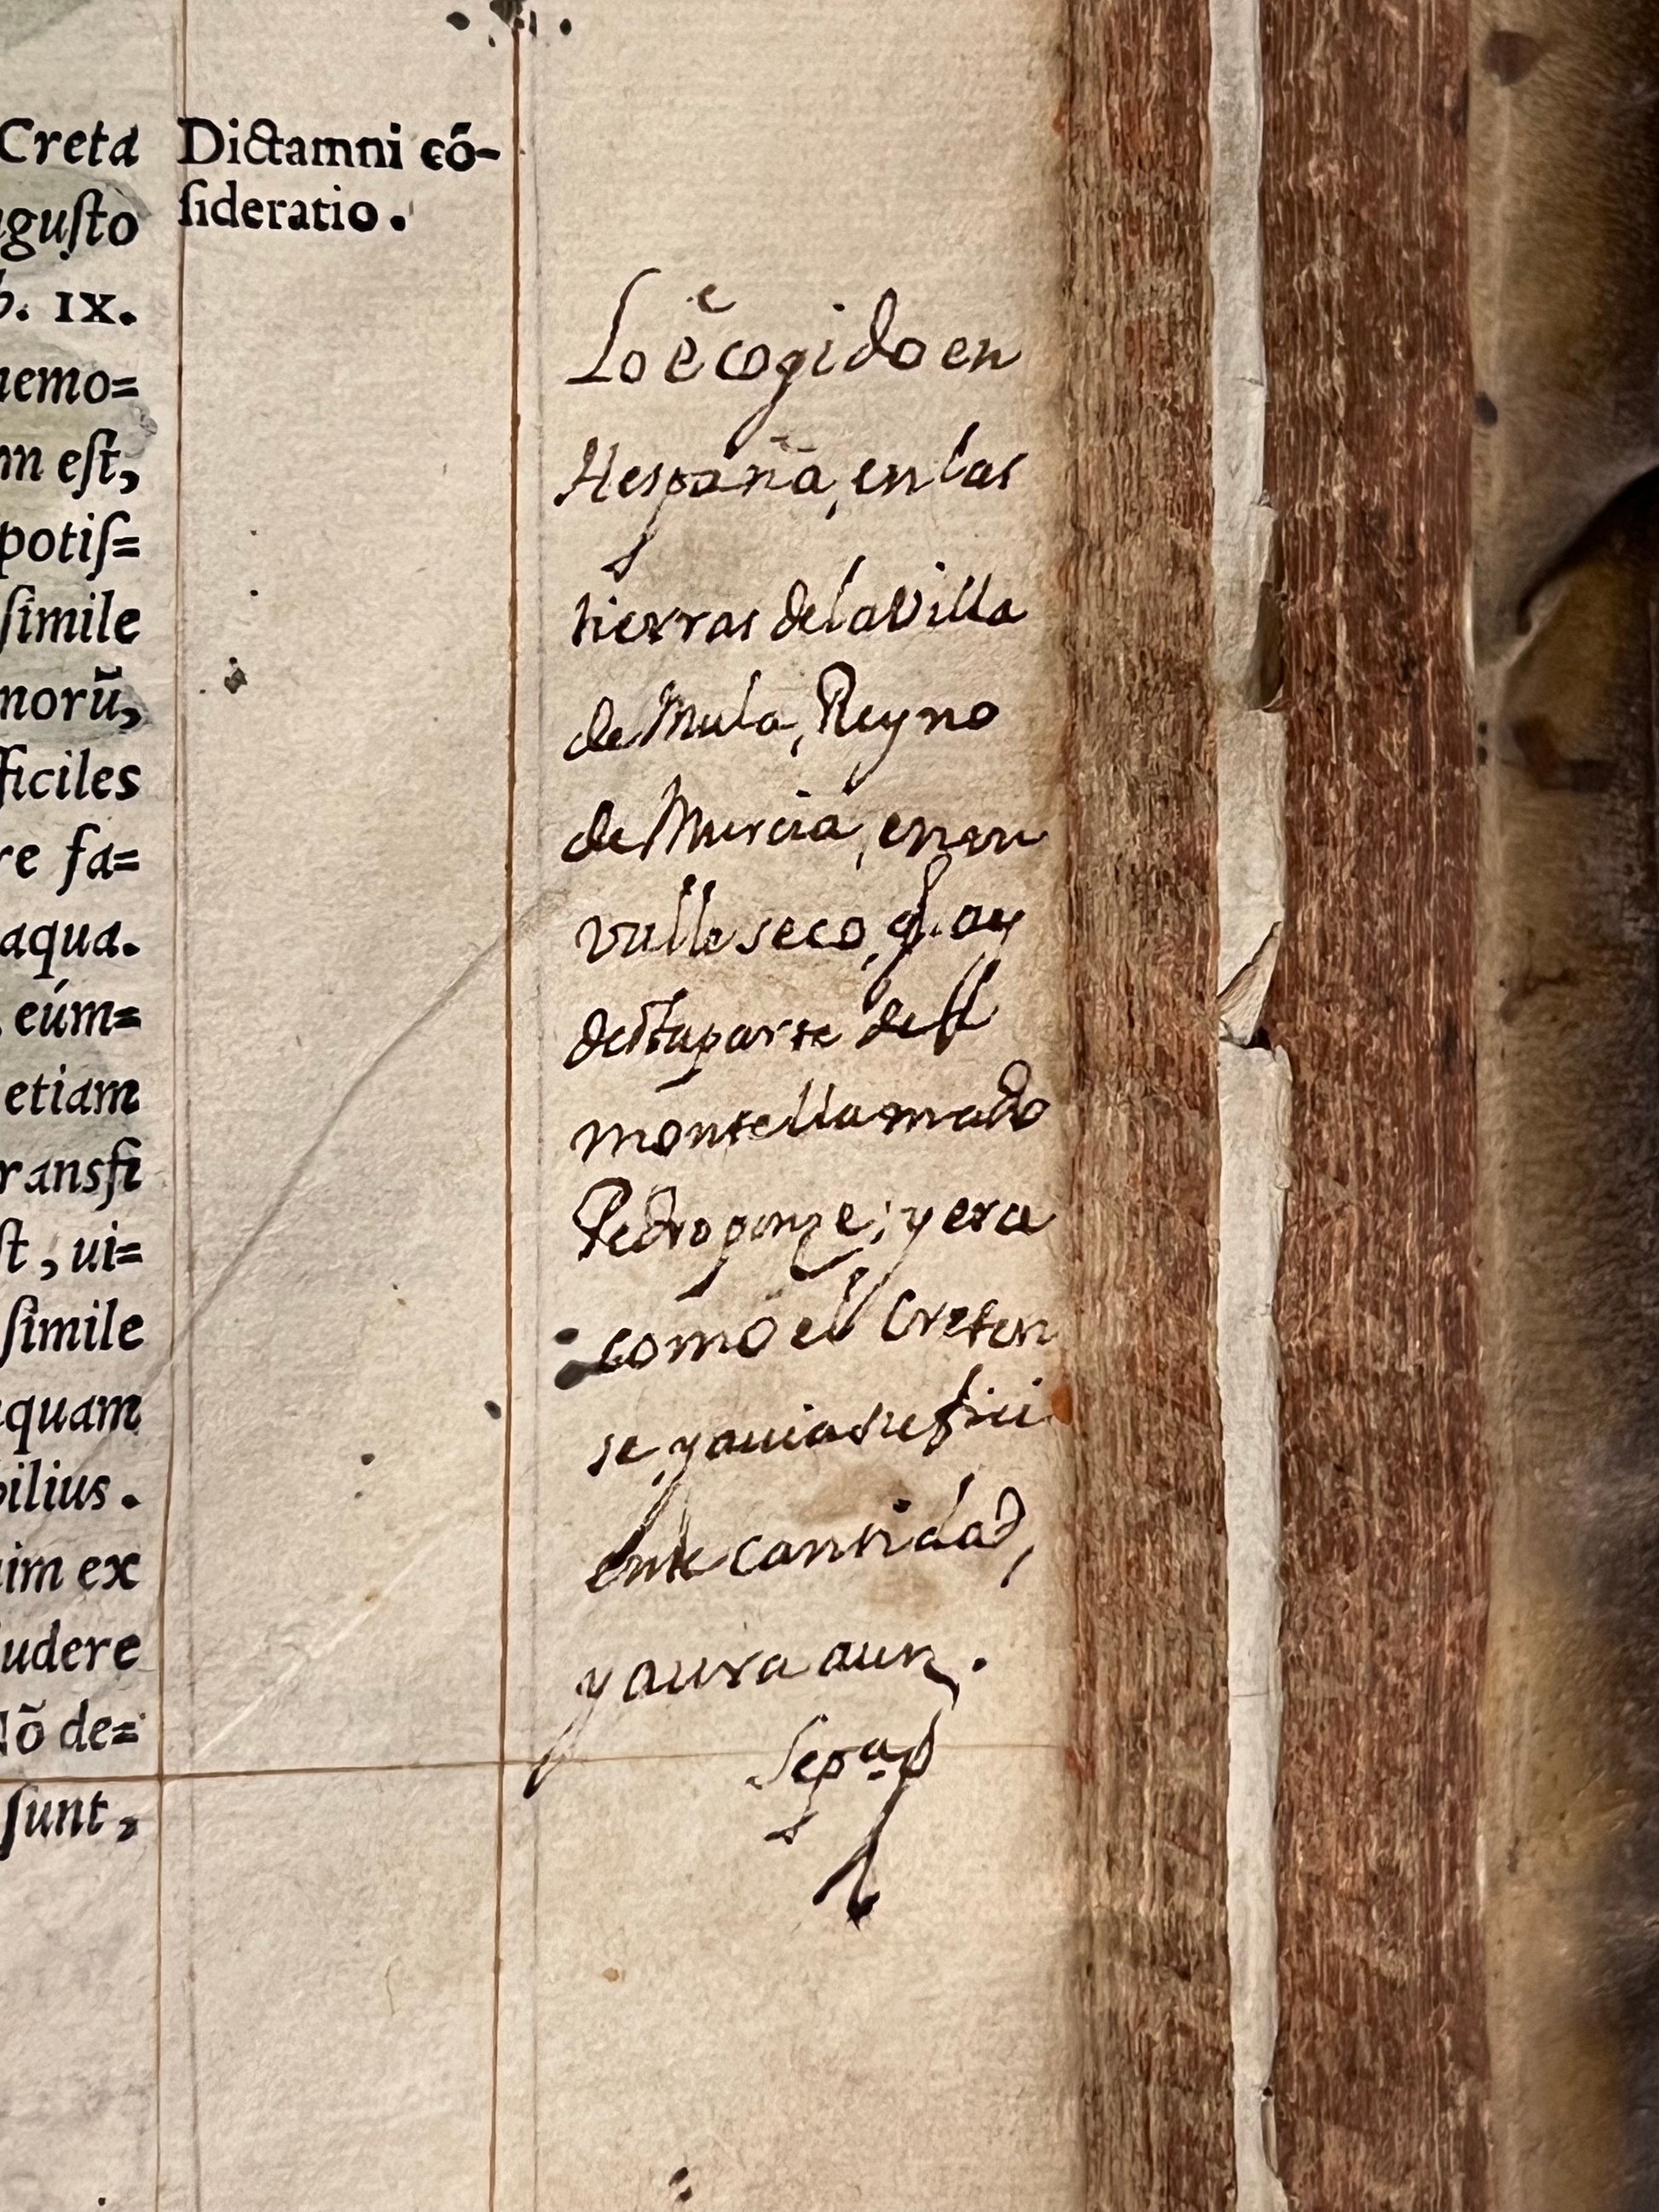 Creta
gusto
b. IX.
nemo=
m est,
potis=
simile
norū,
ficiles
re fa=
aqua.
eúm=
etiam
ransfi
st, ui=
simile
quam
bilius.
im ex
ludere
Nō de=
sunt,
Dictamni cō-
sideratio.
Lo è cogido en
Hespaña, en las
tierras de la Villa
de Mula, Reyno
de Murcia, en un
valle seco, q. ay
desta parte del
monte llamado
Pedroponze; y era
como el Creten
se, y auia sufici
ente cantidad,
y aura aun.